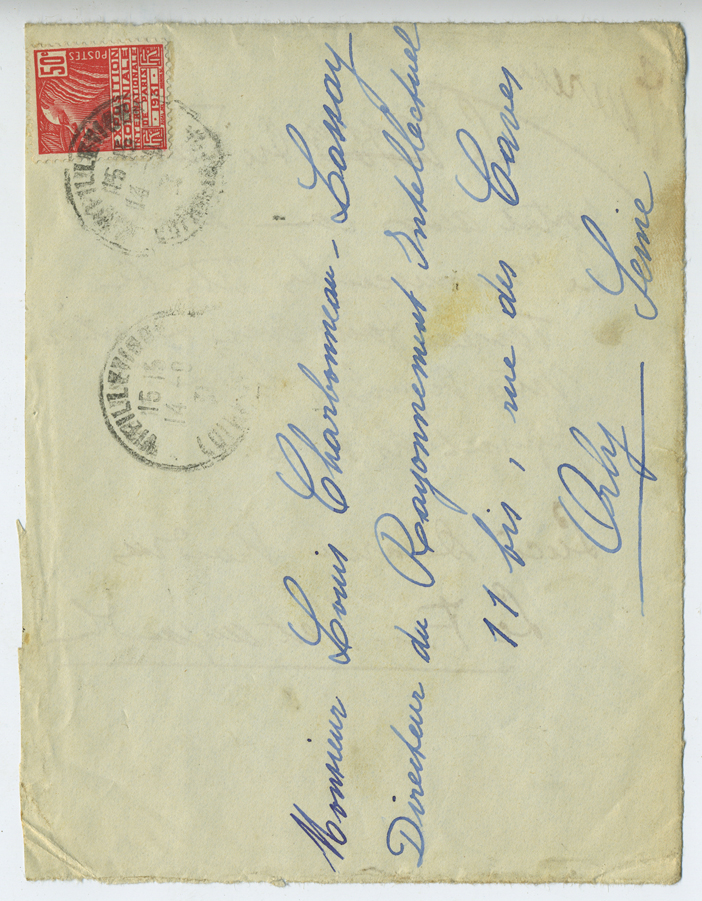 50c
POSTES
EXPOSITION
COLONIALE
INTERNATIONALE
DE PARIS
1931
15
14
VIEILLEVIGNE
15 15
14 -10
31
Monsieur Louis Charbonneau-Lassay
Directeur du Rayonnement Intellectuel
11 bis, rue des Caves
Orly Seine